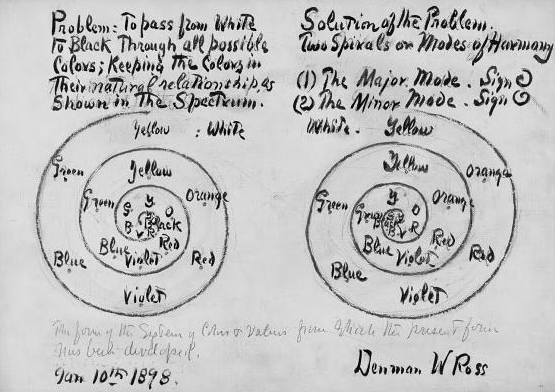 Problem: To pass from White
to Black Through all possible
Colors; Keeping the Colors in
Their natural relationship as
Shown in The Spectrum.
Solution of the Problem.
Two Spirals or Modes of Harmony
(1) The Major Mode. Sign
(2) The Minor Mode. Sign
Yellow : White
Green
Yellow
Green
Orange
Y
G O
B Black
V R
Blue
Violet
Red
Blue
Red
Violet
White. Yellow
Yellow
Orange
Green
Orange
Y
Green O
B R
V
Blue
Violet
Red
Red
Blue
Violet
The form of the System of Colors & Values from which the present form
has been developed.
Jan 10th 1898.
Denman W Ross